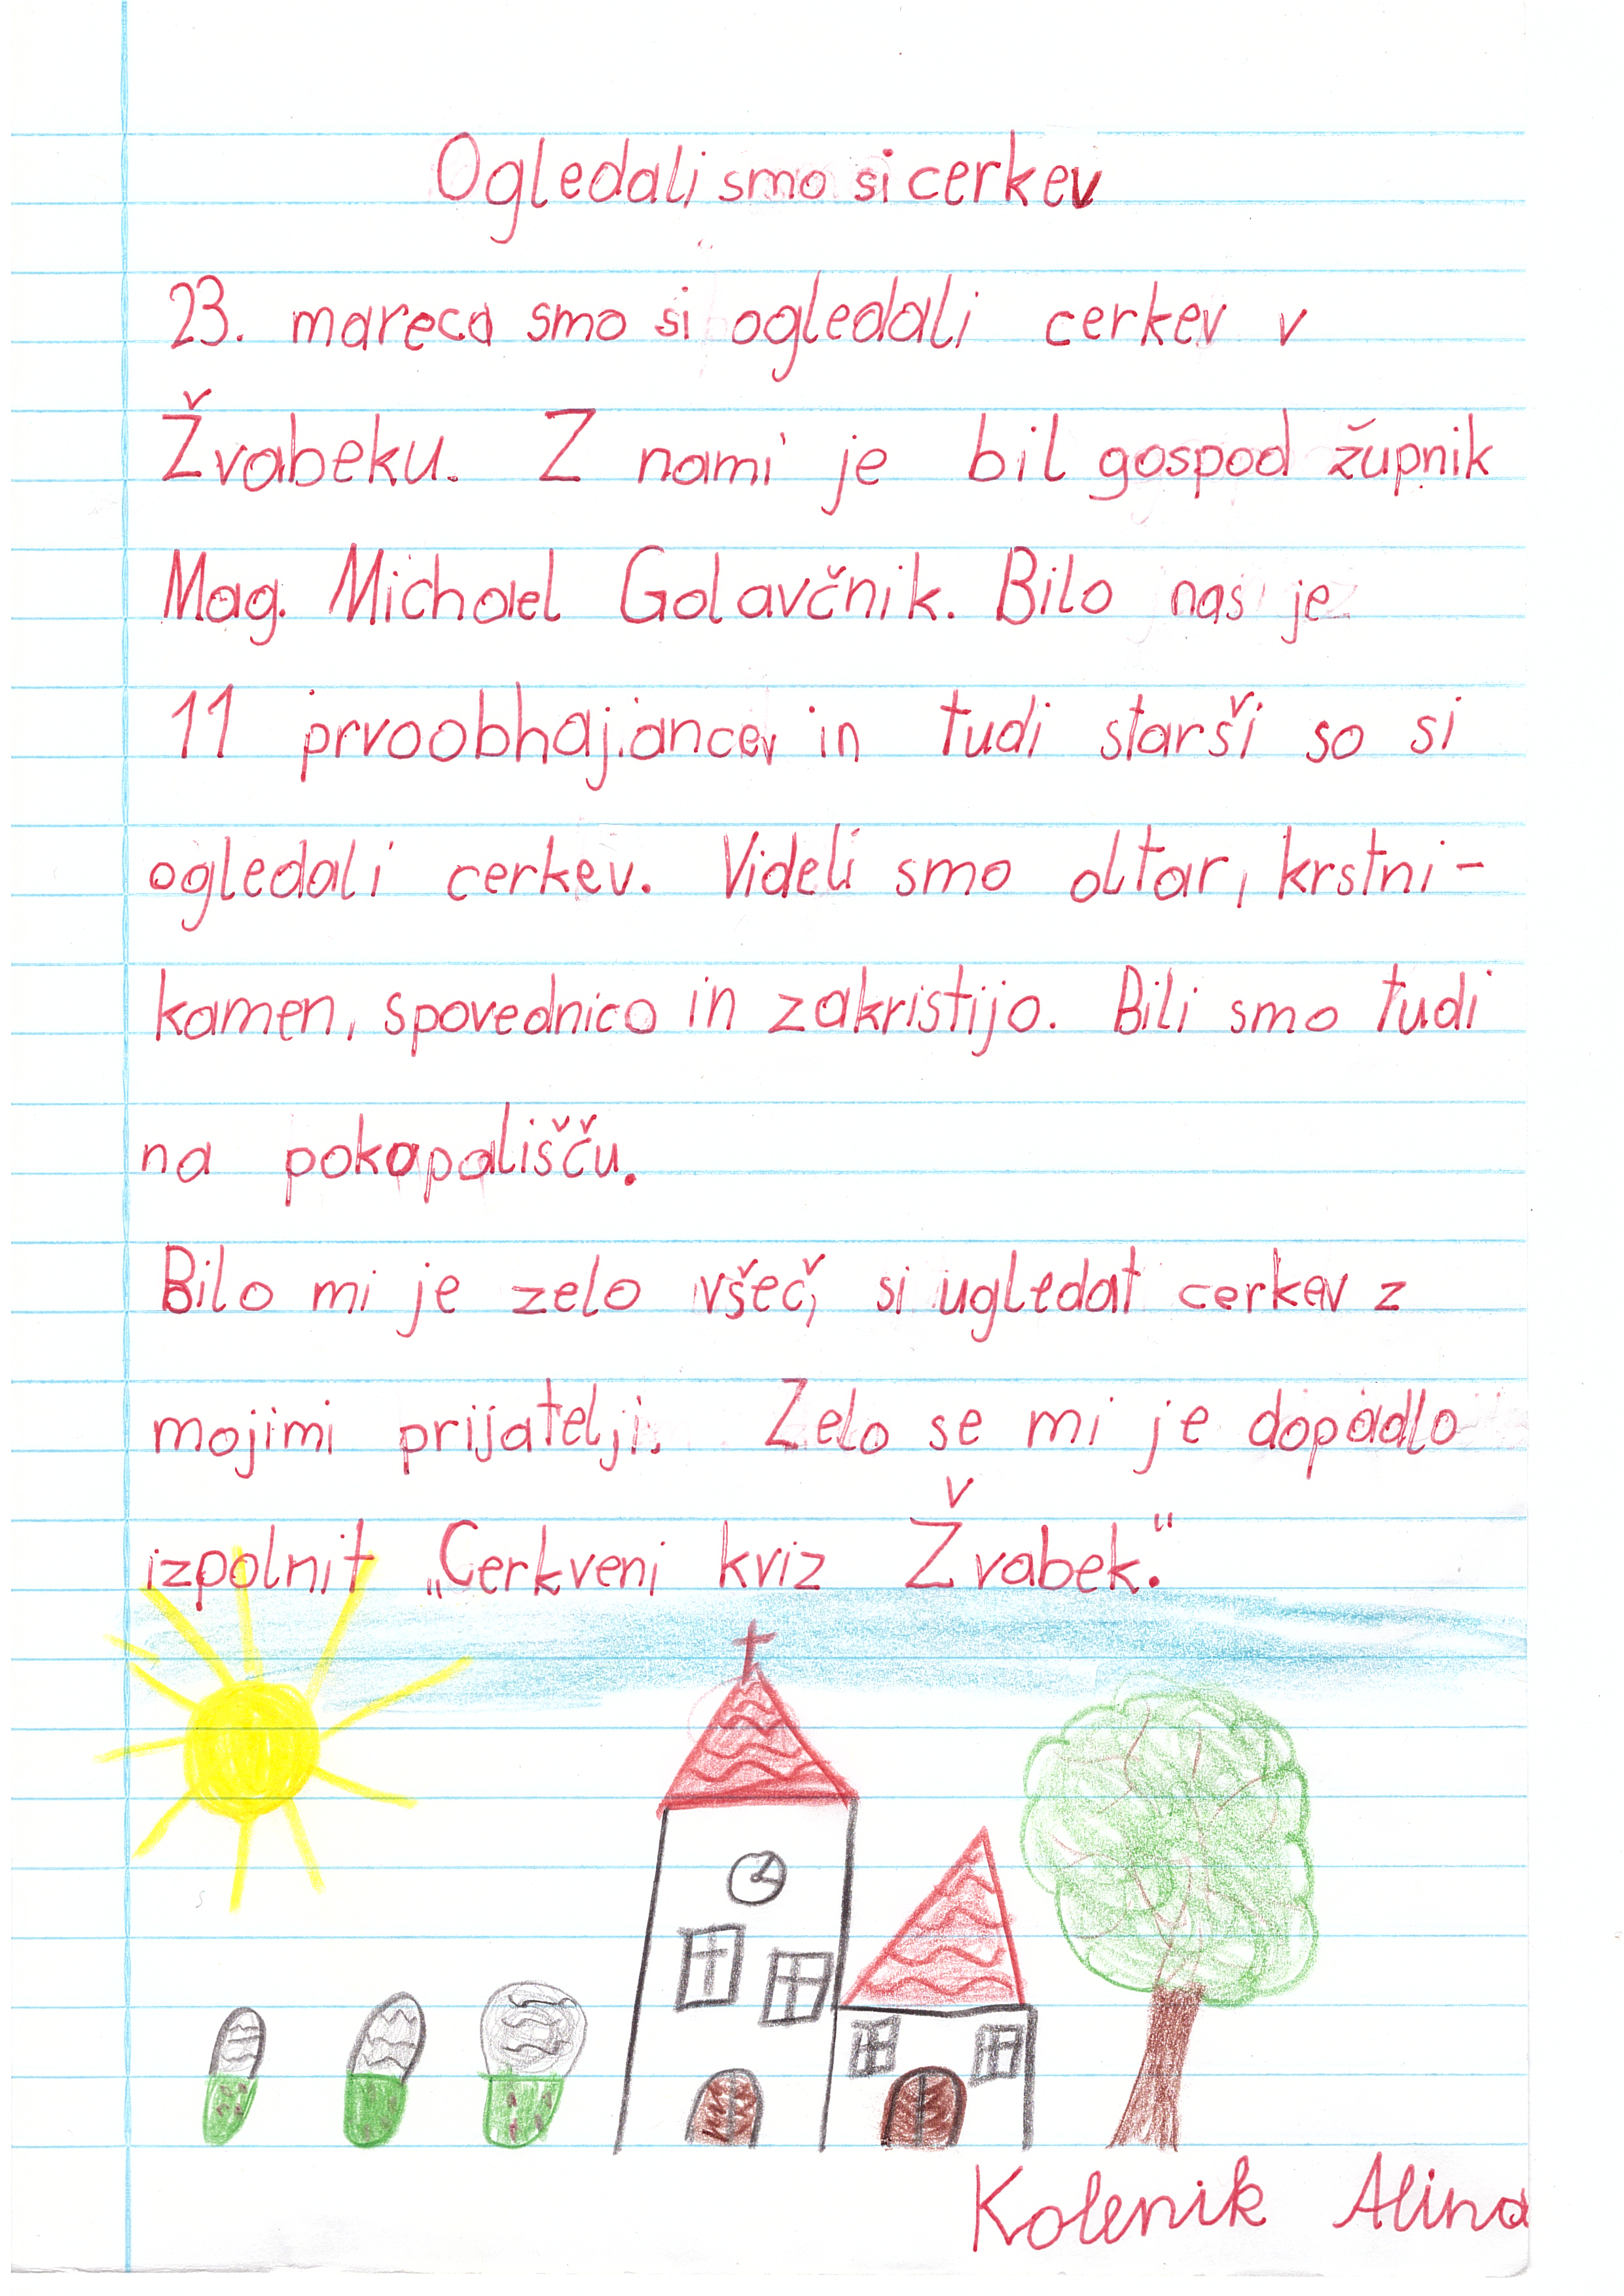 Ogledali smo si cerkev
23. mareca smo si ogledali cerkev v
Žvabeku. Z nami je bil gospod župnik
Mag. Michael Golavčnik. Bilo nas je
11 prvoobhajancev in tudi starši so si
ogledali cerkev. Videli smo oltar, krstni-
kamen, spovednico in zakristijo. Bili smo tudi
na pokopališču.
Bilo mi je zelo všeč, si ugledat cerkev z
mojimi prijatelji. Zelo se mi je dopadlo
izpolnit „Cerkveni kviz Žvabek.“
Kolenik Alina